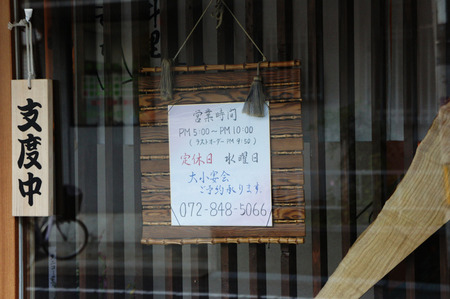 支度中
営業時間
PM 5:00～PM 10:00
(ラストオーダーPM 9:30)
定休日 水曜日
大小宴会
ご予約承ります
072-848-5066